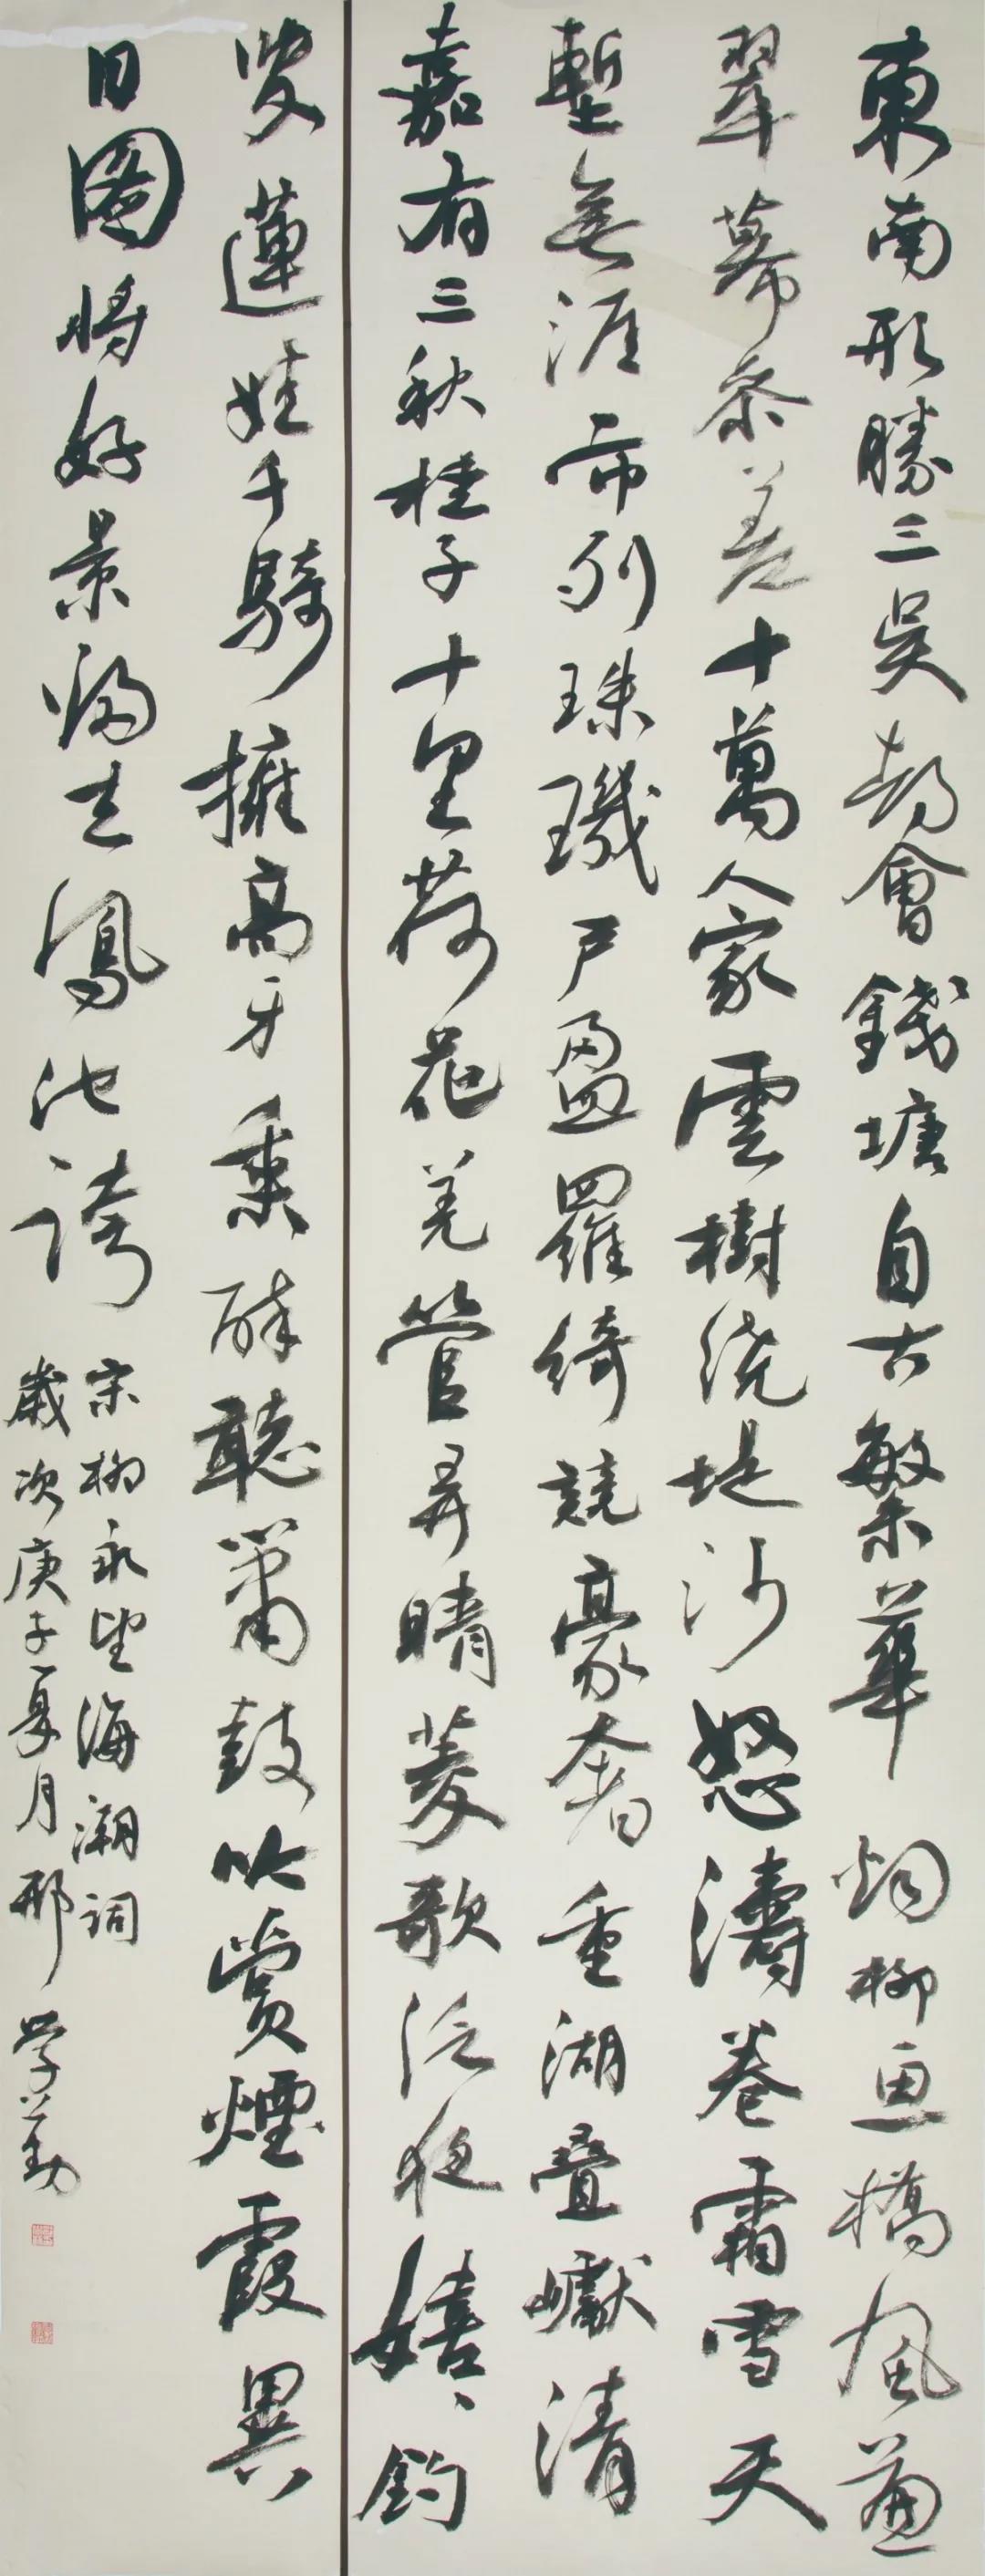 東南形勝三吳都會錢塘自古繁華烟柳画橋風簾
翠幕参差十萬人家雲樹绕堤沙怒濤卷霜雪天
塹無涯市列珠璣戶盈羅綺競豪奢重湖疊巘清
嘉有三秋桂子十里荷花羌管弄晴菱歌泛夜嬉嬉釣
叟蓮娃千騎擁高牙乘醉聽簫鼓吟賞煙霞異
日圖將好景歸去鳳池誇
宋柳永望海潮詞
歲次庚子夏月邢学勤